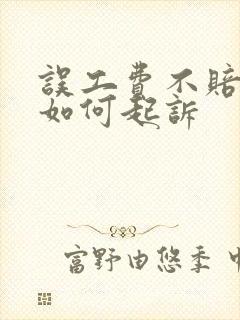 誤工費不賠
如何起訴
富野由悠季